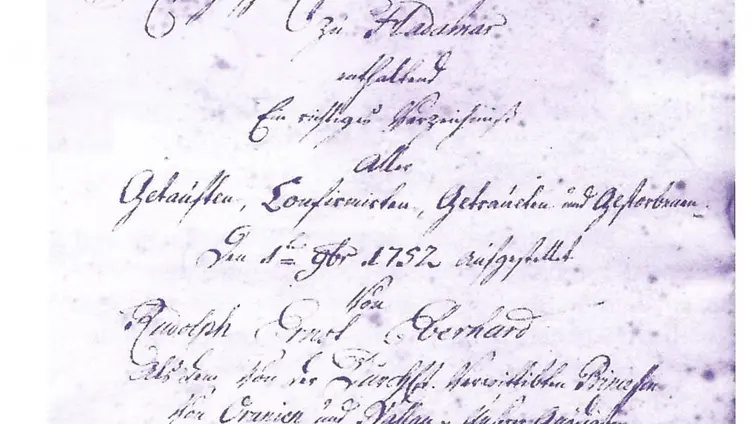 zu Hadamar
enthaltend
Ein richtiges Verzeichniß
Aller
Getauften, Confirmirten, Getrauten und Gestorbenen.
Den 1ten 9br 1752 aufgestellet
Von
Rudolph Ernst Eberhard
Als dem Von der Durchl. Verwittibten Princessin
Von Oranien und Naßau